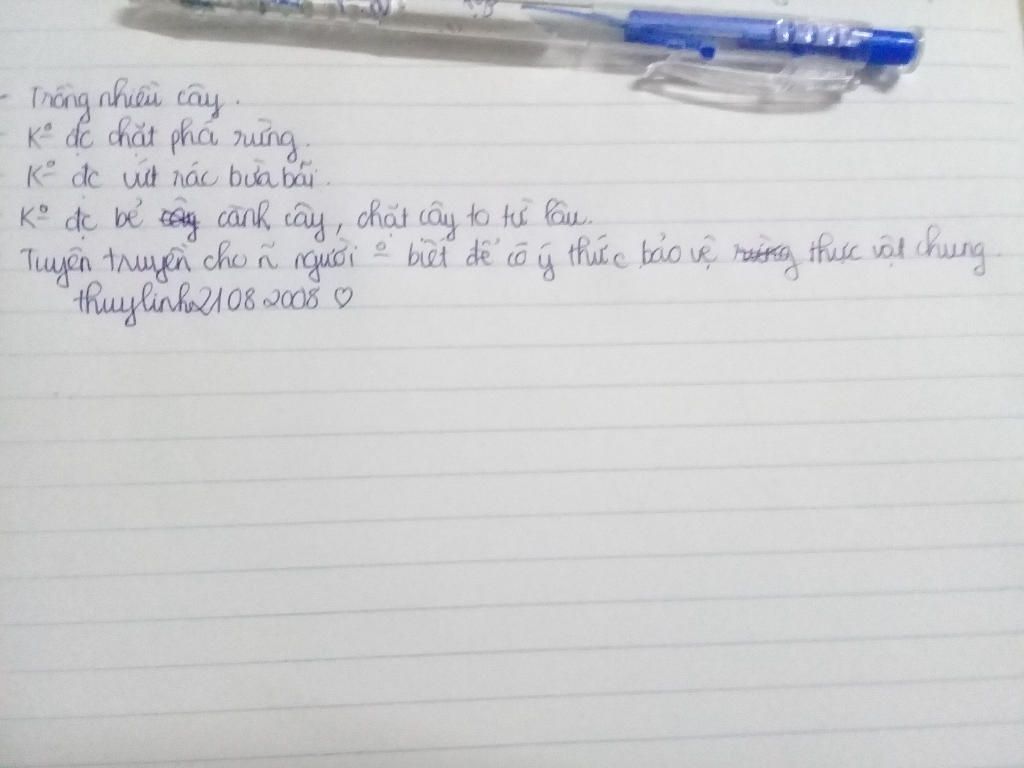 - Trồng nhiều cây.
- K° đc chặt phá rừng.
- K° đc vứt rác bừa bãi.
- K° đc bẻ cây cành cây, chặt cây to từ lâu.
Tuyên truyền cho ñ người ° biết để có ý thức bảo vệ rừng thực vật chung
thuylinh21082008 ♡